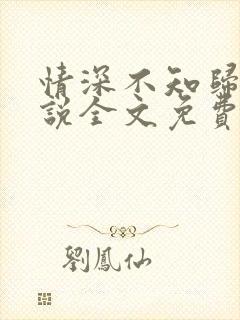 情深不知歸
說全文免費
劉鳳仙